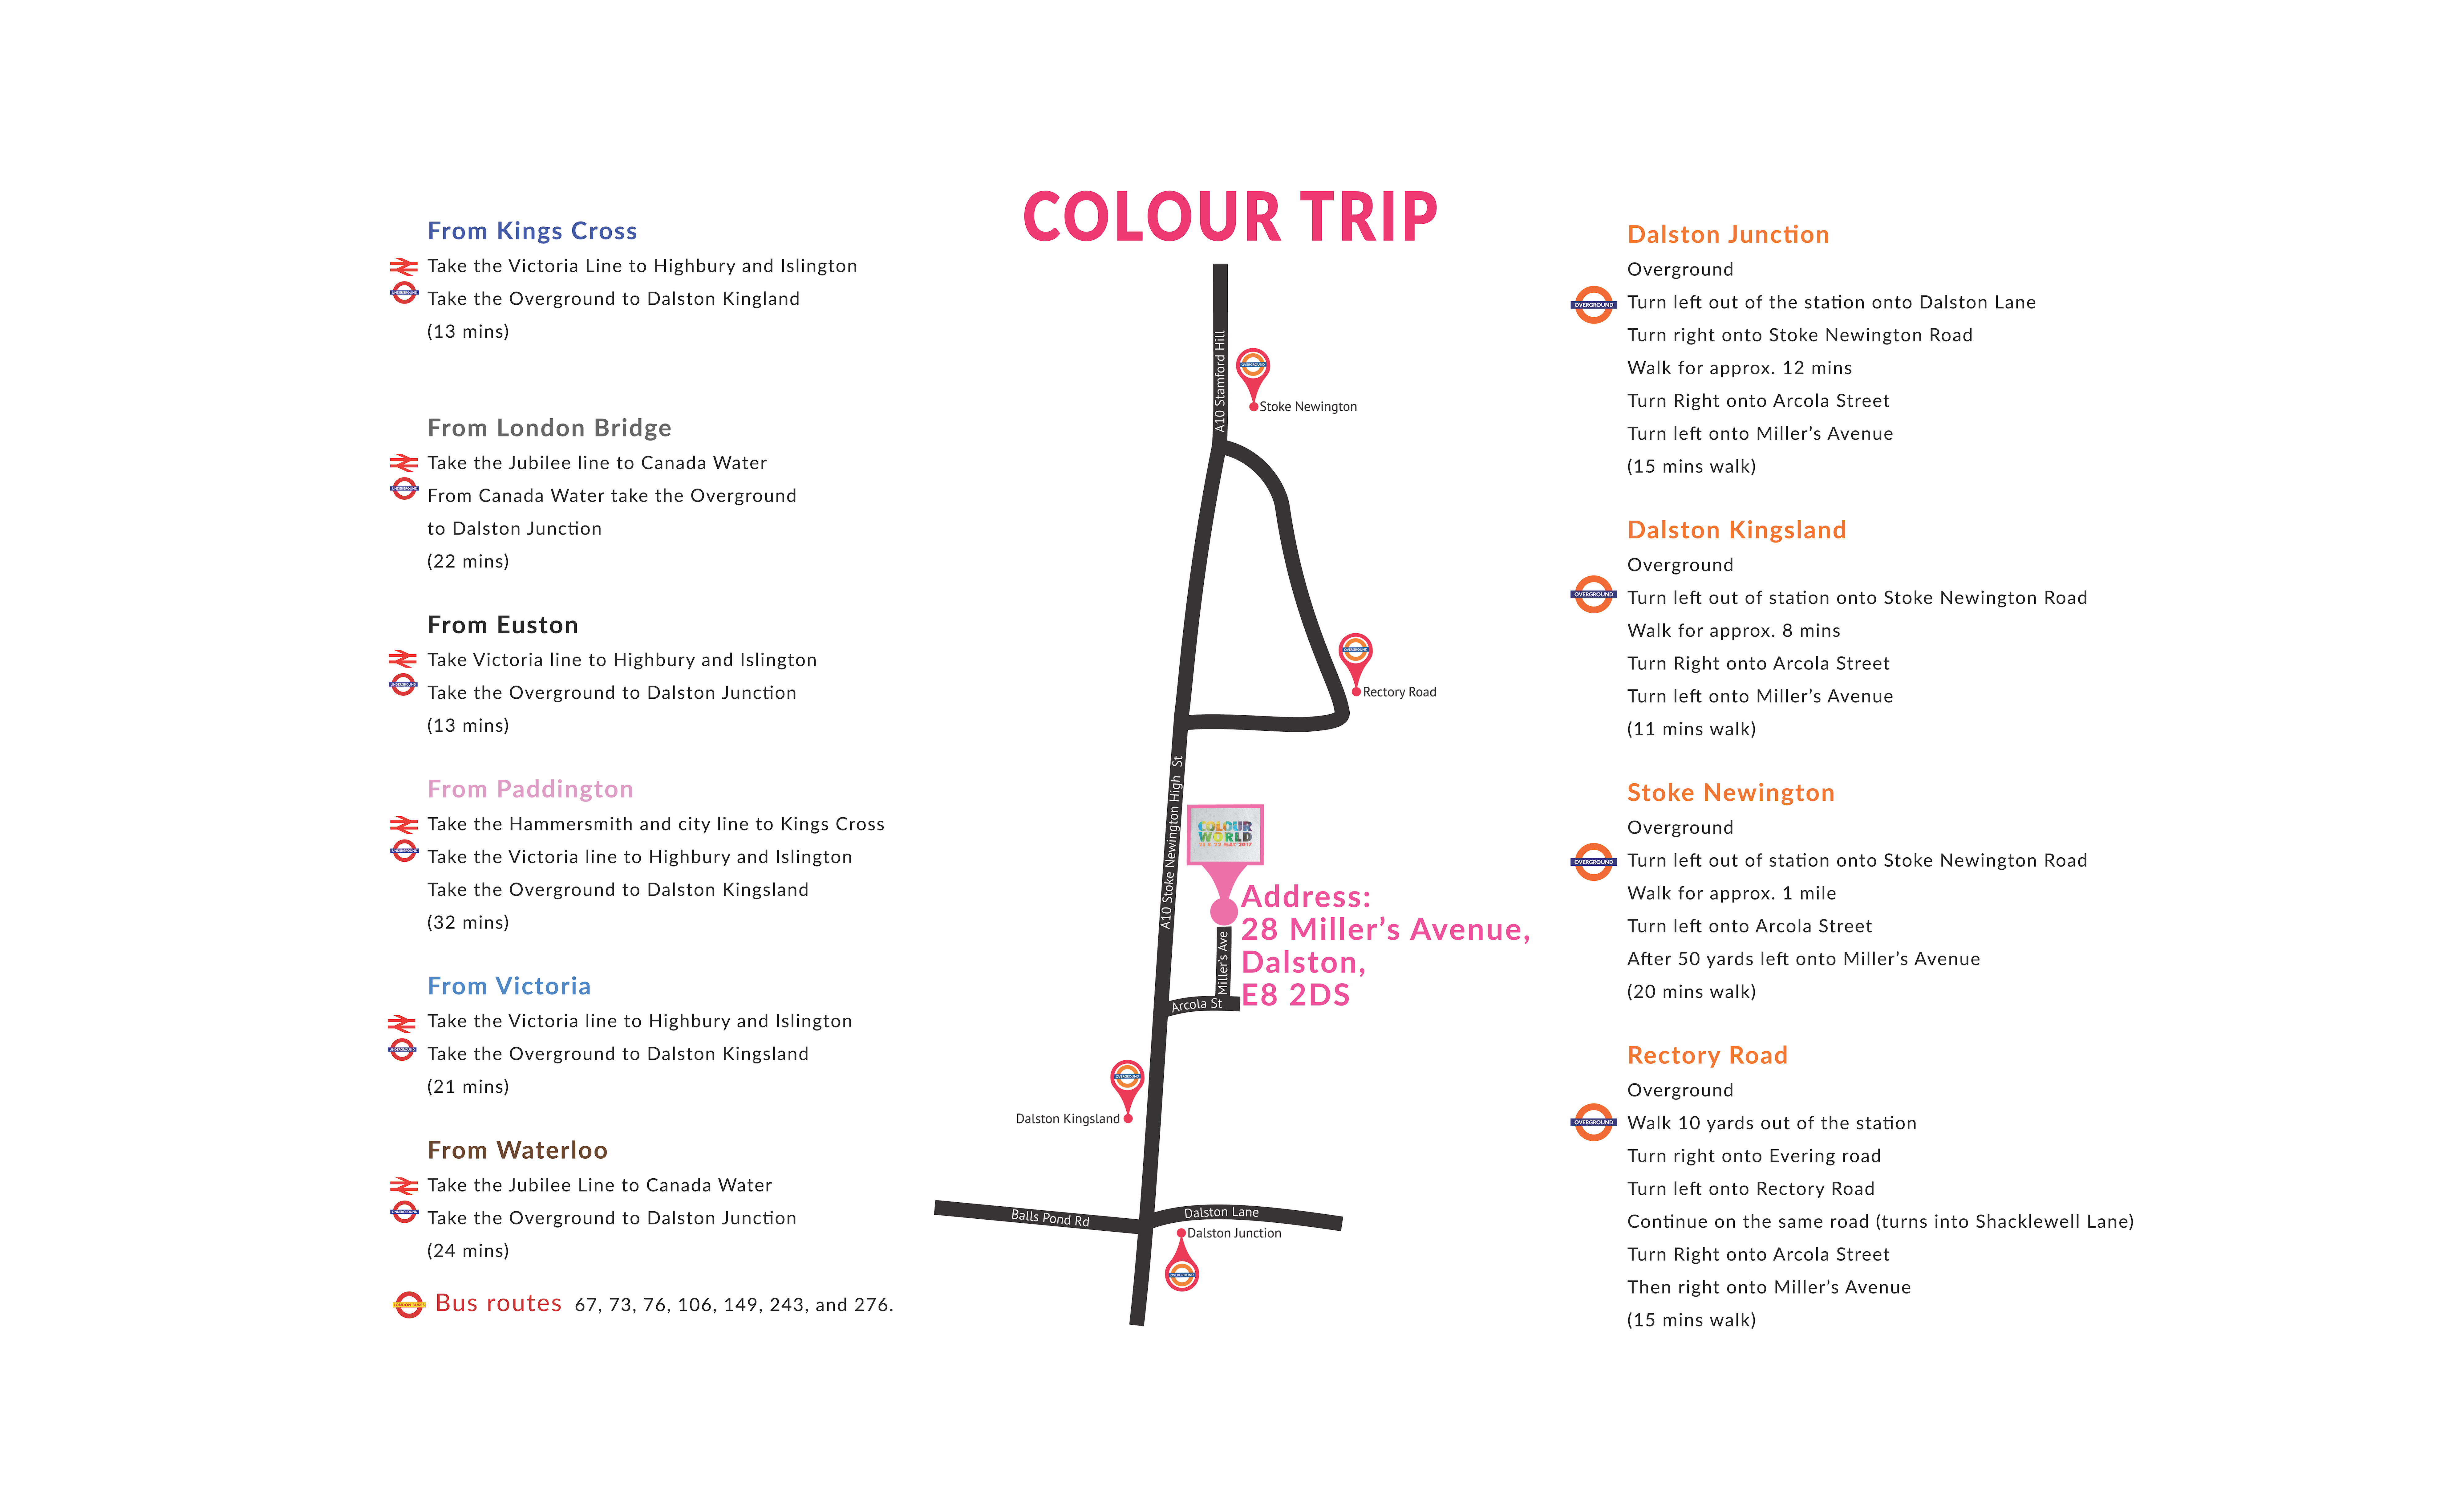 COLOUR TRIP
From Kings Cross
Take the Victoria Line to Highbury and Islington
Take the Overground to Dalston Kingland
(13 mins)
From London Bridge
Take the Jubilee line to Canada Water
From Canada Water take the Overground
to Dalston Junction
(22 mins)
From Euston
Take Victoria line to Highbury and Islington
Take the Overground to Dalston Junction
(13 mins)
From Paddington
Take the Hammersmith and city line to Kings Cross
Take the Victoria line to Highbury and Islington
Take the Overground to Dalston Kingsland
(32 mins)
From Victoria
Take the Victoria line to Highbury and Islington
Take the Overground to Dalston Kingsland
(21 mins)
From Waterloo
Take the Jubilee Line to Canada Water
Take the Overground to Dalston Junction
(24 mins)
Bus routes 67, 73, 76, 106, 149, 243, and 276.
A10 Stamford Hill
Stoke Newington
Rectory Road
A10 Stoke Newington High St
COLOUR
WORLD
21 & 22 MAY 2017
Address:
28 Miller’s Avenue,
Dalston,
E8 2DS
Miller's Ave
Arcola St
Dalston Kingsland
Balls Pond Rd
Dalston Lane
Dalston Junction
Dalston Junction
Overground
OVERGROUND
Turn left out of the station onto Dalston Lane
Turn right onto Stoke Newington Road
Walk for approx. 12 mins
Turn Right onto Arcola Street
Turn left onto Miller’s Avenue
(15 mins walk)
Dalston Kingsland
Overground
OVERGROUND
Turn left out of station onto Stoke Newington Road
Walk for approx. 8 mins
Turn Right onto Arcola Street
Turn left onto Miller’s Avenue
(11 mins walk)
Stoke Newington
Overground
OVERGROUND
Turn left out of station onto Stoke Newington Road
Walk for approx. 1 mile
Turn left onto Arcola Street
After 50 yards left onto Miller’s Avenue
(20 mins walk)
Rectory Road
Overground
OVERGROUND
Walk 10 yards out of the station
Turn right onto Evering road
Turn left onto Rectory Road
Continue on the same road (turns into Shacklewell Lane)
Turn Right onto Arcola Street
Then right onto Miller’s Avenue
(15 mins walk)